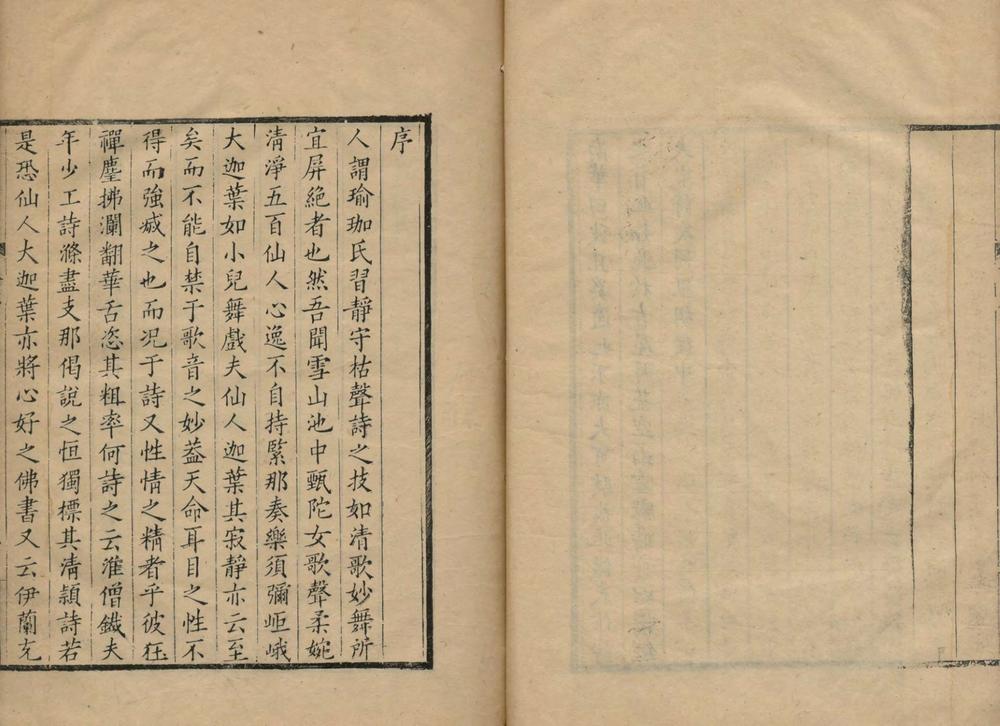 序
人謂瑜珈氏習靜守枯聲詩之技如清歌妙舞所
宜屏絕者也然吾聞雪山池中甄陀女歌聲柔婉
清淨五百仙人心逸不自持緊那奏樂須彌岠峨
大迦葉如小兒舞戲夫仙人迦葉其寂靜亦云至
矣而不能自禁于歌音之妙葢天命耳目之性不
得而強滅之也而况于詩又性情之精者乎彼狂
禪麈拂瀾翻華舌恣其粗率何詩之云淮僧鐵夫
年少工詩滌盡支那偈說之恒獨標其清穎詩若
是恐仙人大迦葉亦將心好之佛書又云伊蘭充